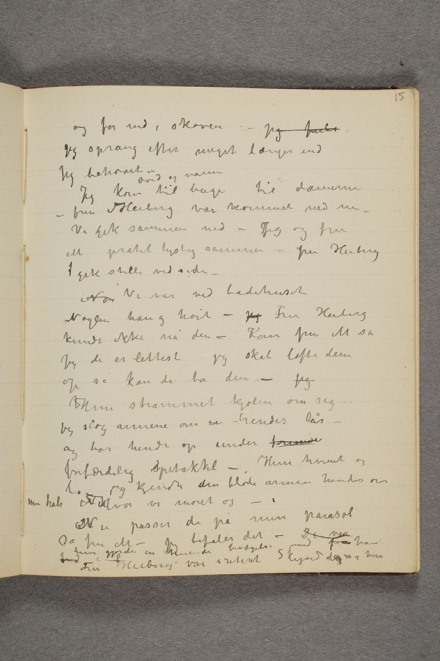 15
og for ned i skoven – jeg
Jeg sprang efter meget længer end
jeg behøvet
ævd og varm
Jeg kom til bage til damerne
– fru Heiberg var kommet ned nu –
Vi gik sammen ned – Jeg og fru
M pratet lystig sammen – fru Heiberg
gik stille ved side –
Når Vi var ved badehuset
Nøglen hang høit – jeg Fru Heiberg
kunde ikke nå den – Kom fru M sa
jeg de er lettest – jeg skal løfte dem
op så kan de ta den – jeg
Hun strammet kjolen om seg –
jeg slog armene om hendes lår –
og har hende op under
forfærdelig Spetakkel – Hun hvinte og
lo og kjendte den bløde armen hendes om
min hals Hvor vi moret os –
Nu passer de på min parasol
Sa fru M – Jeg befaler det –
hun gjorde en truende bevægelse med
Fru Heiberg var irriteret